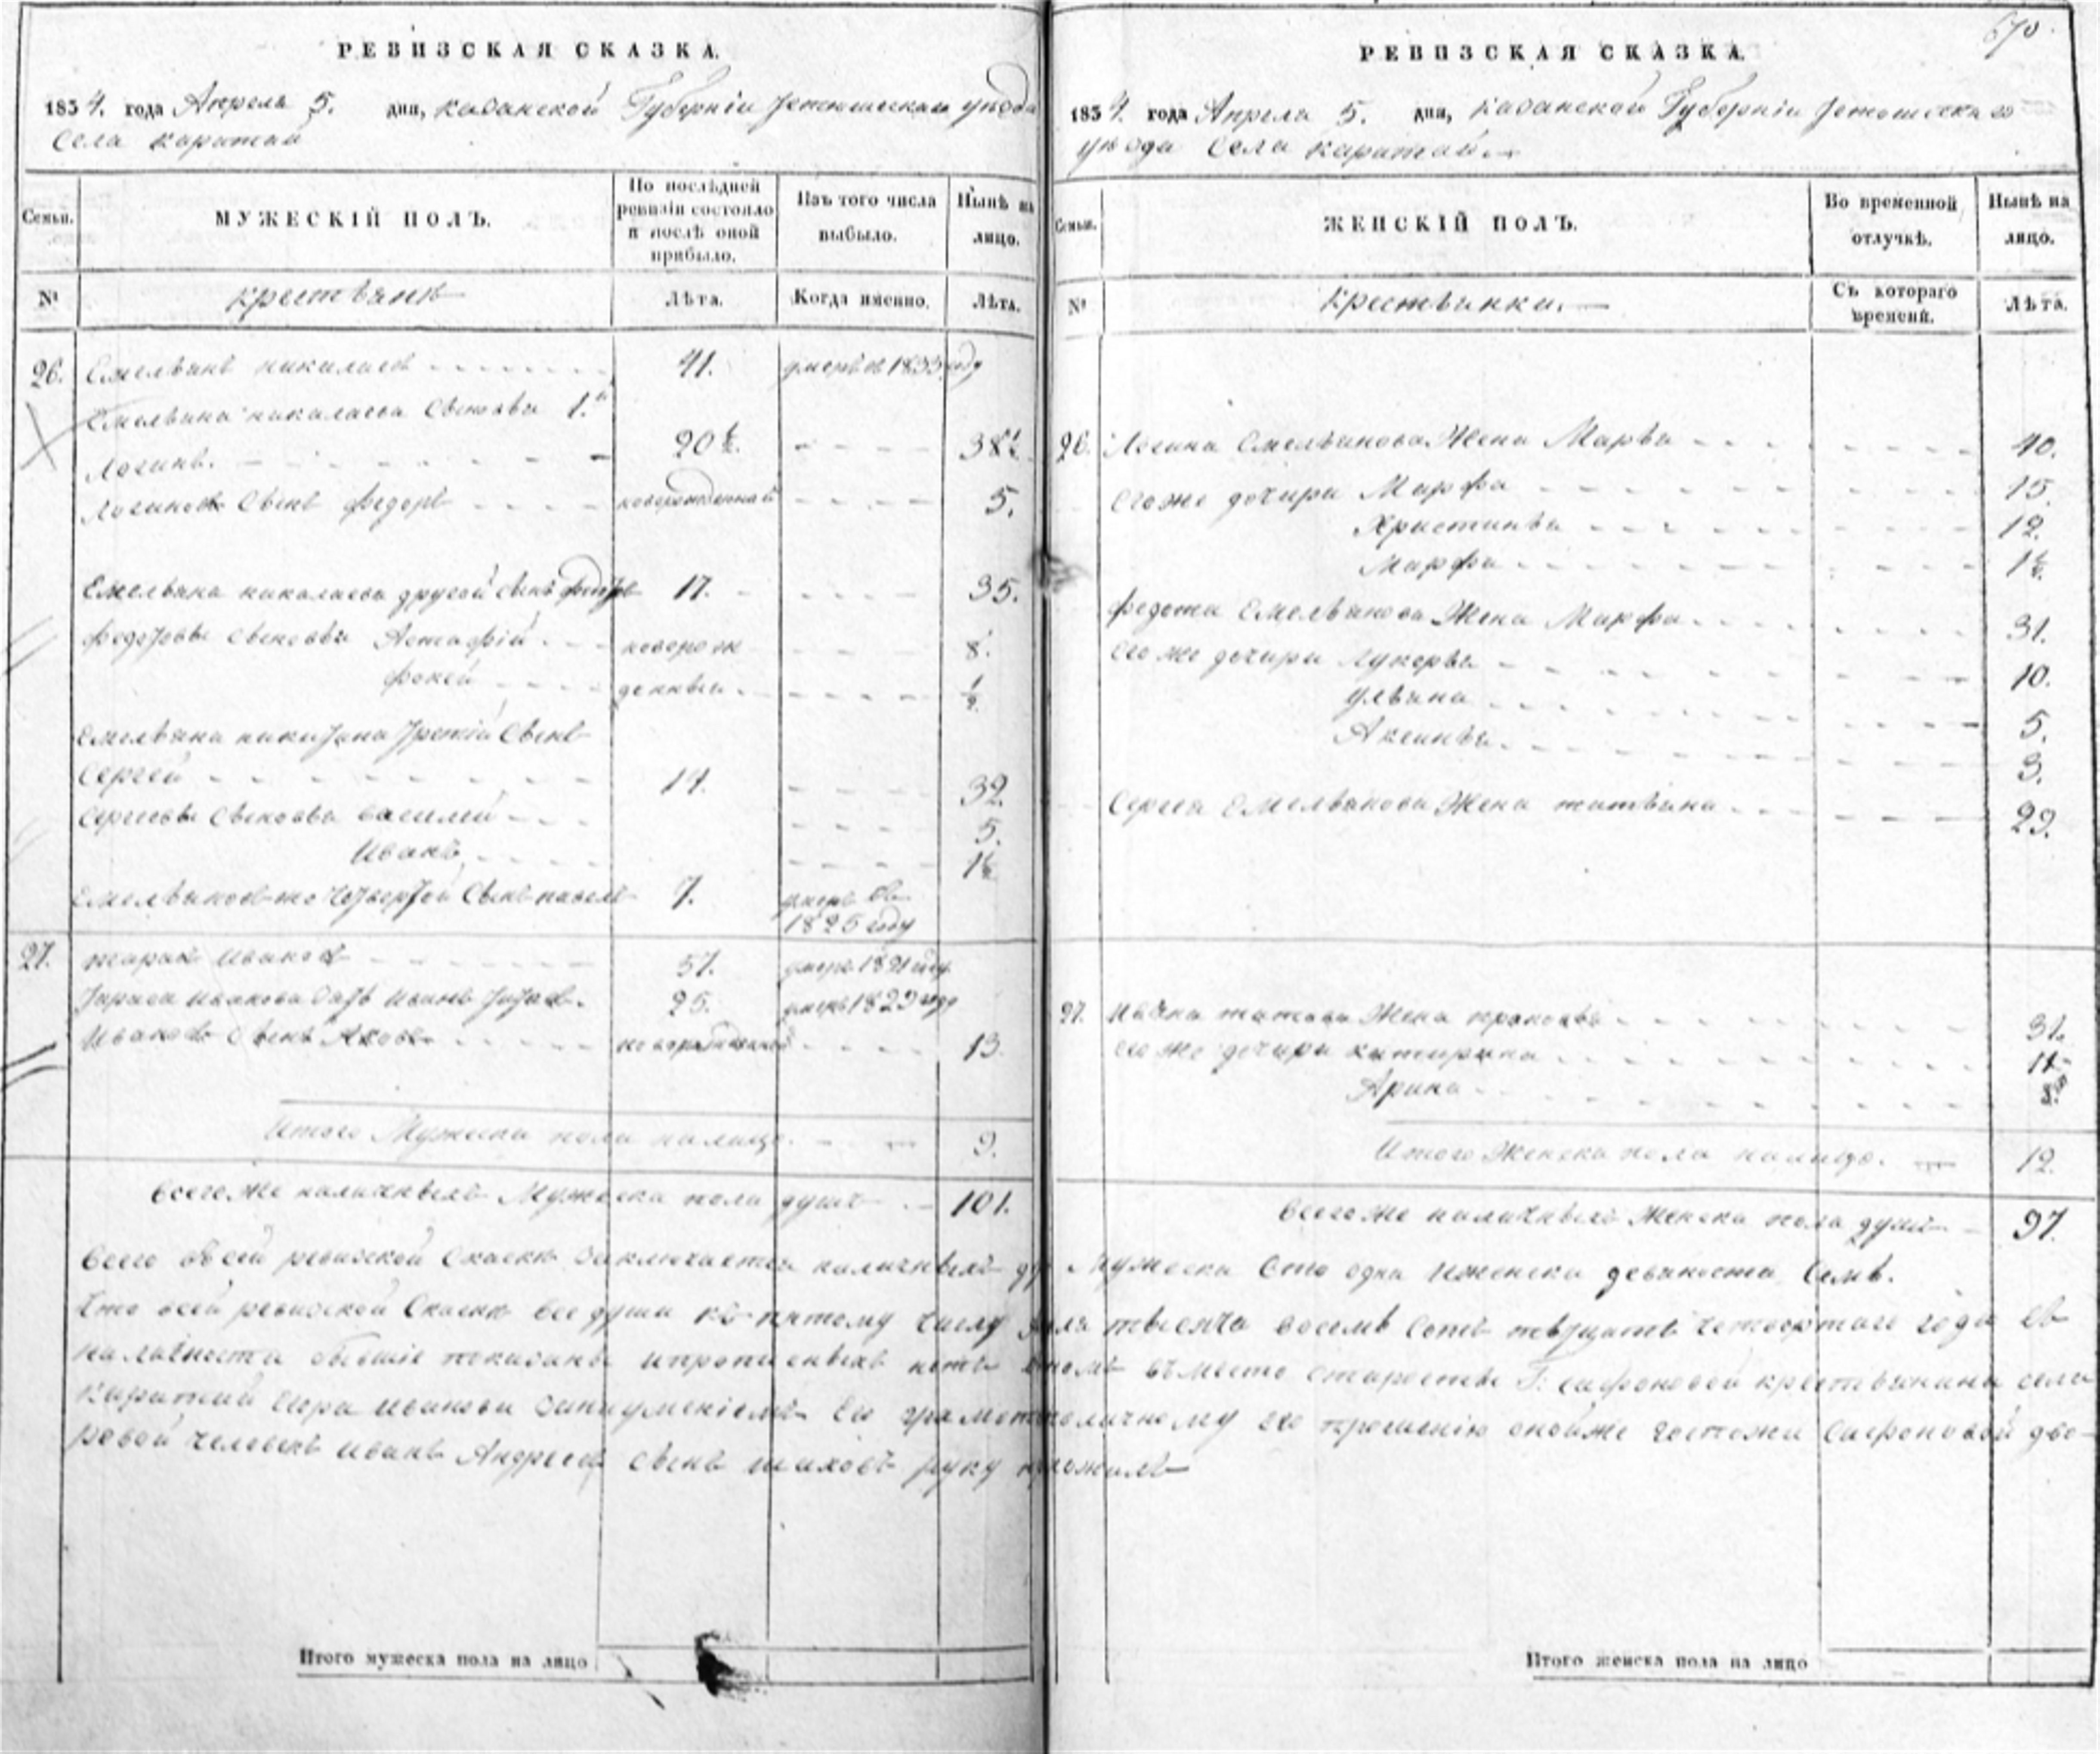 РЕВИЗСКАЯ СКАЗКА.
1834. года Апреля 5. дня, казанской Губерніи тетюшскаго уѣзда
Села каратай
Семьи.
МУЖЕСКІЙ ПОЛЪ.
По послѣдней ревизіи состояло и послѣ оной прибыло.
Изъ того числа выбыло.
Нынѣ на лицо.
№
крестьянѣ
Лѣта.
Когда именно.
Лѣта.
26. Емельянъ николаевъ 41. умеръ въ 1833 году
Емельяна николаева Сыновьи 1.й
Логинъ. 20½. 38½
Логиновъ Сынъ федоръ новорожденной 5.
Емельяна николаева другой сынъ 17. 35.
Сыновьи Астафій новорож 8.
фокей денныи ½
Емельяна третій Сынъ
Сергей 14. 32.
Сергеевы Сыновьи василей 5.
Иванъ 1½
Емельяновъ-же Четвертой Сынъ павелъ 7. умеръ въ
1825 году
27. тарас Ивановъ 57. умеръ 1821 году
Тараса иванова зать Иванъ 25. умеръ 1829 году
Ивановъ Сынъ Яковъ новорожденной 13.
Итого Мужеска пола налицо. 9.
Всегоже наличныхъ Мужеска пола душъ 101.
РЕВИЗСКАЯ СКАЗКА.
670.
1834. года Апреля 5. дня, казанской Губерніи тетюшскаго
уѣзда Села каратай
Семьи.
ЖЕНСКІЙ ПОЛЪ.
Во временной отлучкѣ.
Нынѣ на лицо.
№
Крестьянки.
Съ котораго времени.
Лѣта.
26. Логина Емельянова Жена Марья 40.
Егоже дочери Марфа 15.
Христинья 12.
Марфа 1½.
федота Емельянова Жена Марфа 31.
Егоже дочери лукерья 10.
Ульяна 5.
Аксинья 3.
Сергея Емельянова Жена татьяна 29.
27. Ивана Жена 31.
Егоже дочери катерина
Арина 8.
Итого Женска пола налицо. 12.
Всегоже наличныхъ Женска пола душъ 97.
Всего въ сей ревизской Сказки заключается наличныхъ Мужеска Сто одна иженска девяноста Семь.
Что всей ревизской Сказки все души къ пятому числу тысяча восемь Сотъ тридцать четвертаго года въ
наличности бывшіе показаны вместо старосты Г: сафоновой крестьянина села
каратай ивана его грамоте поличному его прошенію онойже госпожи Сафоновой дво-
ровой человекъ иванъ Андреевъ Сынъ руку приложилъ
Итого мужеска пола на лицо
Итого женска пола на лицо